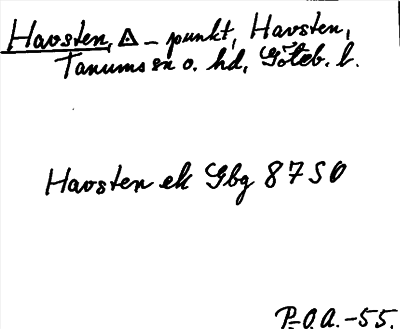 Havsten, △ - punkt, Havsten,
Tanums sn o. hd, Göteb. l.
Havsten ek Gbg 87 SO
P-O.A. -55.